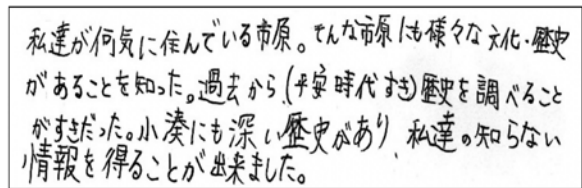 私達が何気に住んでいる市原。そんな市原にも様々な文化・歴史
があることを知った。過去から(平安時代すき)歴史を調べること
がすきだった。小湊にも深い歴史があり、私達の知らない
情報を得ることが出来ました。